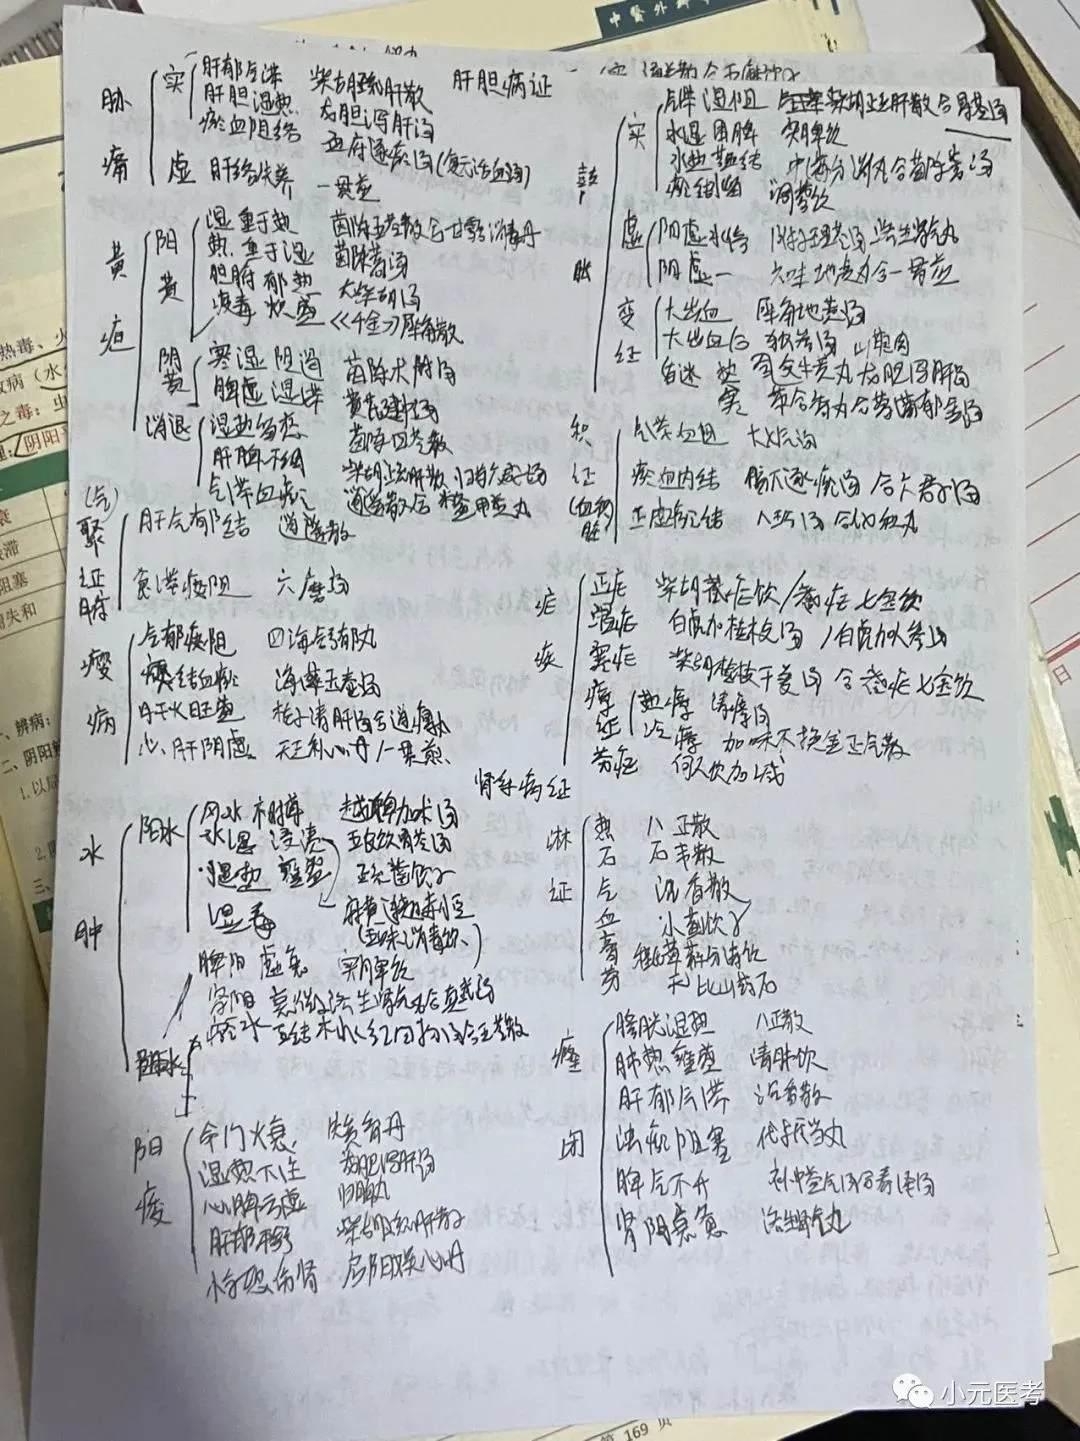 肝胆病证
胁痛
实
肝郁气滞 柴胡疏肝散
肝胆湿热 龙胆泻肝汤
瘀血阻络 血府逐瘀汤(复元活血汤)
虚 肝络失养 一贯煎
黄疸
阳黄
湿重于热 茵陈五苓散合甘露消毒丹
热重于湿 茵陈蒿汤
胆腑郁热 大柴胡汤
疫毒炽盛 《千金》犀角散
阴黄
寒湿阻遏 茵陈术附汤
脾虚湿滞 黄芪建中汤
消退
湿热留恋 茵陈四苓散
肝脾不调 柴胡疏肝散
气滞血瘀 逍遥散合鳖甲煎丸
(气)聚证
肝气郁结 逍遥散
食滞痰阻 六磨汤
瘿病
气郁痰阻 四海舒郁丸
痰结血瘀 海藻玉壶汤
肝火旺盛 栀子清肝汤合
心肝阴虚 天王补心丹/一贯煎
水肿
阳水
风水相搏 越婢加术汤
水湿浸渍 五皮饮胃苓汤
湿热壅盛 疏凿饮子
湿毒
(五味消毒饮)
阴水
脾阳虚衰 实脾饮
肾阳衰微 济生肾气丸合真武汤
瘀水互结 桃红四物汤合五苓散
阳痿
命门火衰 赞育丹
湿热下注 龙胆泻肝汤
心脾亏虚 归脾丸
肝郁不舒 柴胡疏肝散
惊恐伤肾 启阳娱心丹
鼓胀
实
气滞湿阻 柴胡疏肝散合胃苓汤
水湿困脾 实脾饮
水热蕴结 中满分消丸合茵陈蒿汤
调营饮
虚
阳虚水 附子理苓汤 济生肾气丸
阴虚 六味地黄丸合一贯煎
变证
大出血 犀角地黄汤
大出血后 独参汤 山萸肉
昏迷 热 安宫牛黄丸 龙胆泻肝汤
实 苏合香丸合菖蒲郁金汤
积证(血)
气滞血阻 大七气汤
瘀血内结 膈下逐瘀汤合六君子汤
正虚瘀结 八珍汤合化积丸
疟疾
正疟 柴胡截疟饮/截疟七宝饮
温疟 白虎加桂枝汤/白虎加人参汤
寒疟 柴胡桂枝干姜汤合截疟七宝饮
瘴证
热瘴 清瘴汤
冷瘴 加味不换金正气散
劳疟 何人饮加减
肾系病证
淋证
热 八正散
石 石韦散
气 沉香散
血 小蓟饮子
膏 程氏萆薢分清饮
劳 无比山药丸
癃闭
膀胱湿热 八正散
肺热壅盛 清肺饮
肝郁气滞 沉香散
浊瘀阻塞 代抵当丸
脾气不升 补中益气汤合春泽汤
肾阳衰惫 济生肾气丸
中医外科
热毒、火
病(水
之毒:虫
阴阳
阻塞
失和
、辨病:
169 页
小元医考